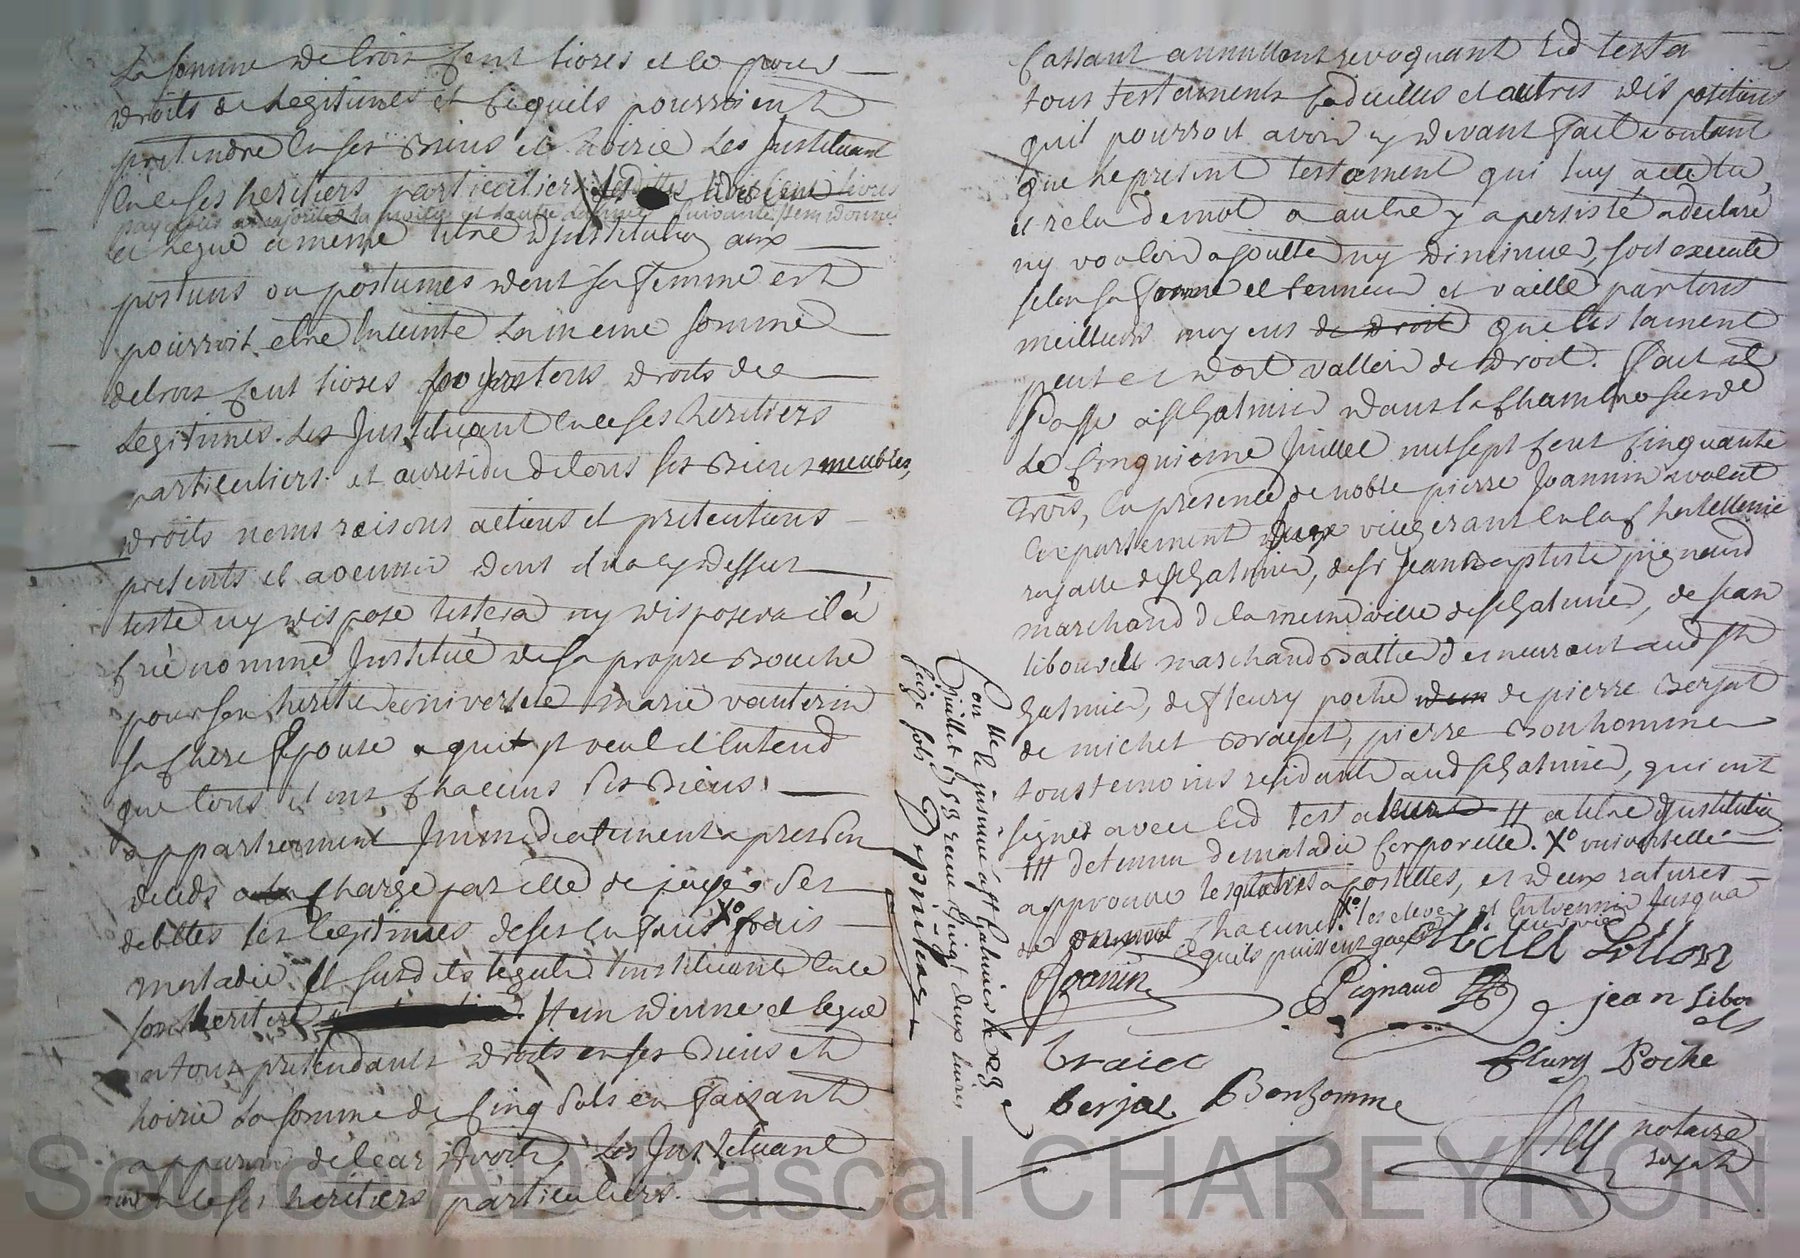 La somme de trois cent livres et ce pour
droits de legitimes et ce quils pourroient
pretendre en ses biens et hoirie Les Instituant
en ce ses heritiers particuliers
et legue a meme titre d'Institution aux
postums ou postumes dont sa femme est
pourroit etre enceinte La meme somme
de trois cent livres pour tous droits de
Legitimes. Les Instituant en ce ses heritiers
particuliers. et au residu de tous ses biens meubles,
droits noms raisons actions et pretentions
presents et a venir dont il n'a cy dessus
testé ny disposé testera ny disposera il a
créé nommé Institué de sa propre bouche
pour son heritiere universelle marie vauterin
sa chere Epouse a qui il veut et Entend
que tous et uns chacuns ses biens
appartiennent Immediatement apres son
deceds a la charge par elle de payer ses
debttes les legitimes de ses enfans X° frais
maladie et susdits legats l'instituant en ce
son heritiere Item donne et legue
a tous pretendants droits en ses biens et
hoirie La somme de cinq sols en faisant
apparoir de leur droits, Les Instituant
en ce ses heritiers particuliers.
Con.lle le jusiné a St Galmier le 28
Juillet 1753 recu vingt deux livres
seize sols
Cassant annullant revoquant led testa
tous testaments codicilles et autres dispositions
quil pourroit avoir cy devant fait voulant
que le present testament qui luy a eté lu,
et relu de mot a autre y a persisté a declaré
ny vouloir ajoutter ny diminuer, soit executé
selon sa forme et tenneur et vaille par tous
meilleurs moyens de droit que testament
peut et doit valloir de droit. Fait et
Passé a St Galmier dans la chambre
Le cinquieme Juillet mil sept cent cinquante
trois, en presence de noble pierre Joannin avocat
en parlement juge vicegerant en la chastellenie
royalle de St Galmier, de sr Jean Baptiste pignaud
marchand de la meme ville de St Galmier, de jean
libourelle marchand battier demeurant aud St
Galmier, de fleury poche de pierre berjat
de michel brayet, pierre Bonhomme
tous temoins residants aud St Galmier, qui ont
signés avec led testateur # a titre d'Institution
## detenu de maladie corporelle. X° universelle
approuve les quatres apostilles, et deux ratures
X° les elever et entrenir jusqua
ce quils puissent gagner leur vie
Joannin
Pignaud
jean libou
elle
braiet
fleury Poche
berjat
Bonhomme
Rey notaire
royal
Source AD Pascal CHAREYRON